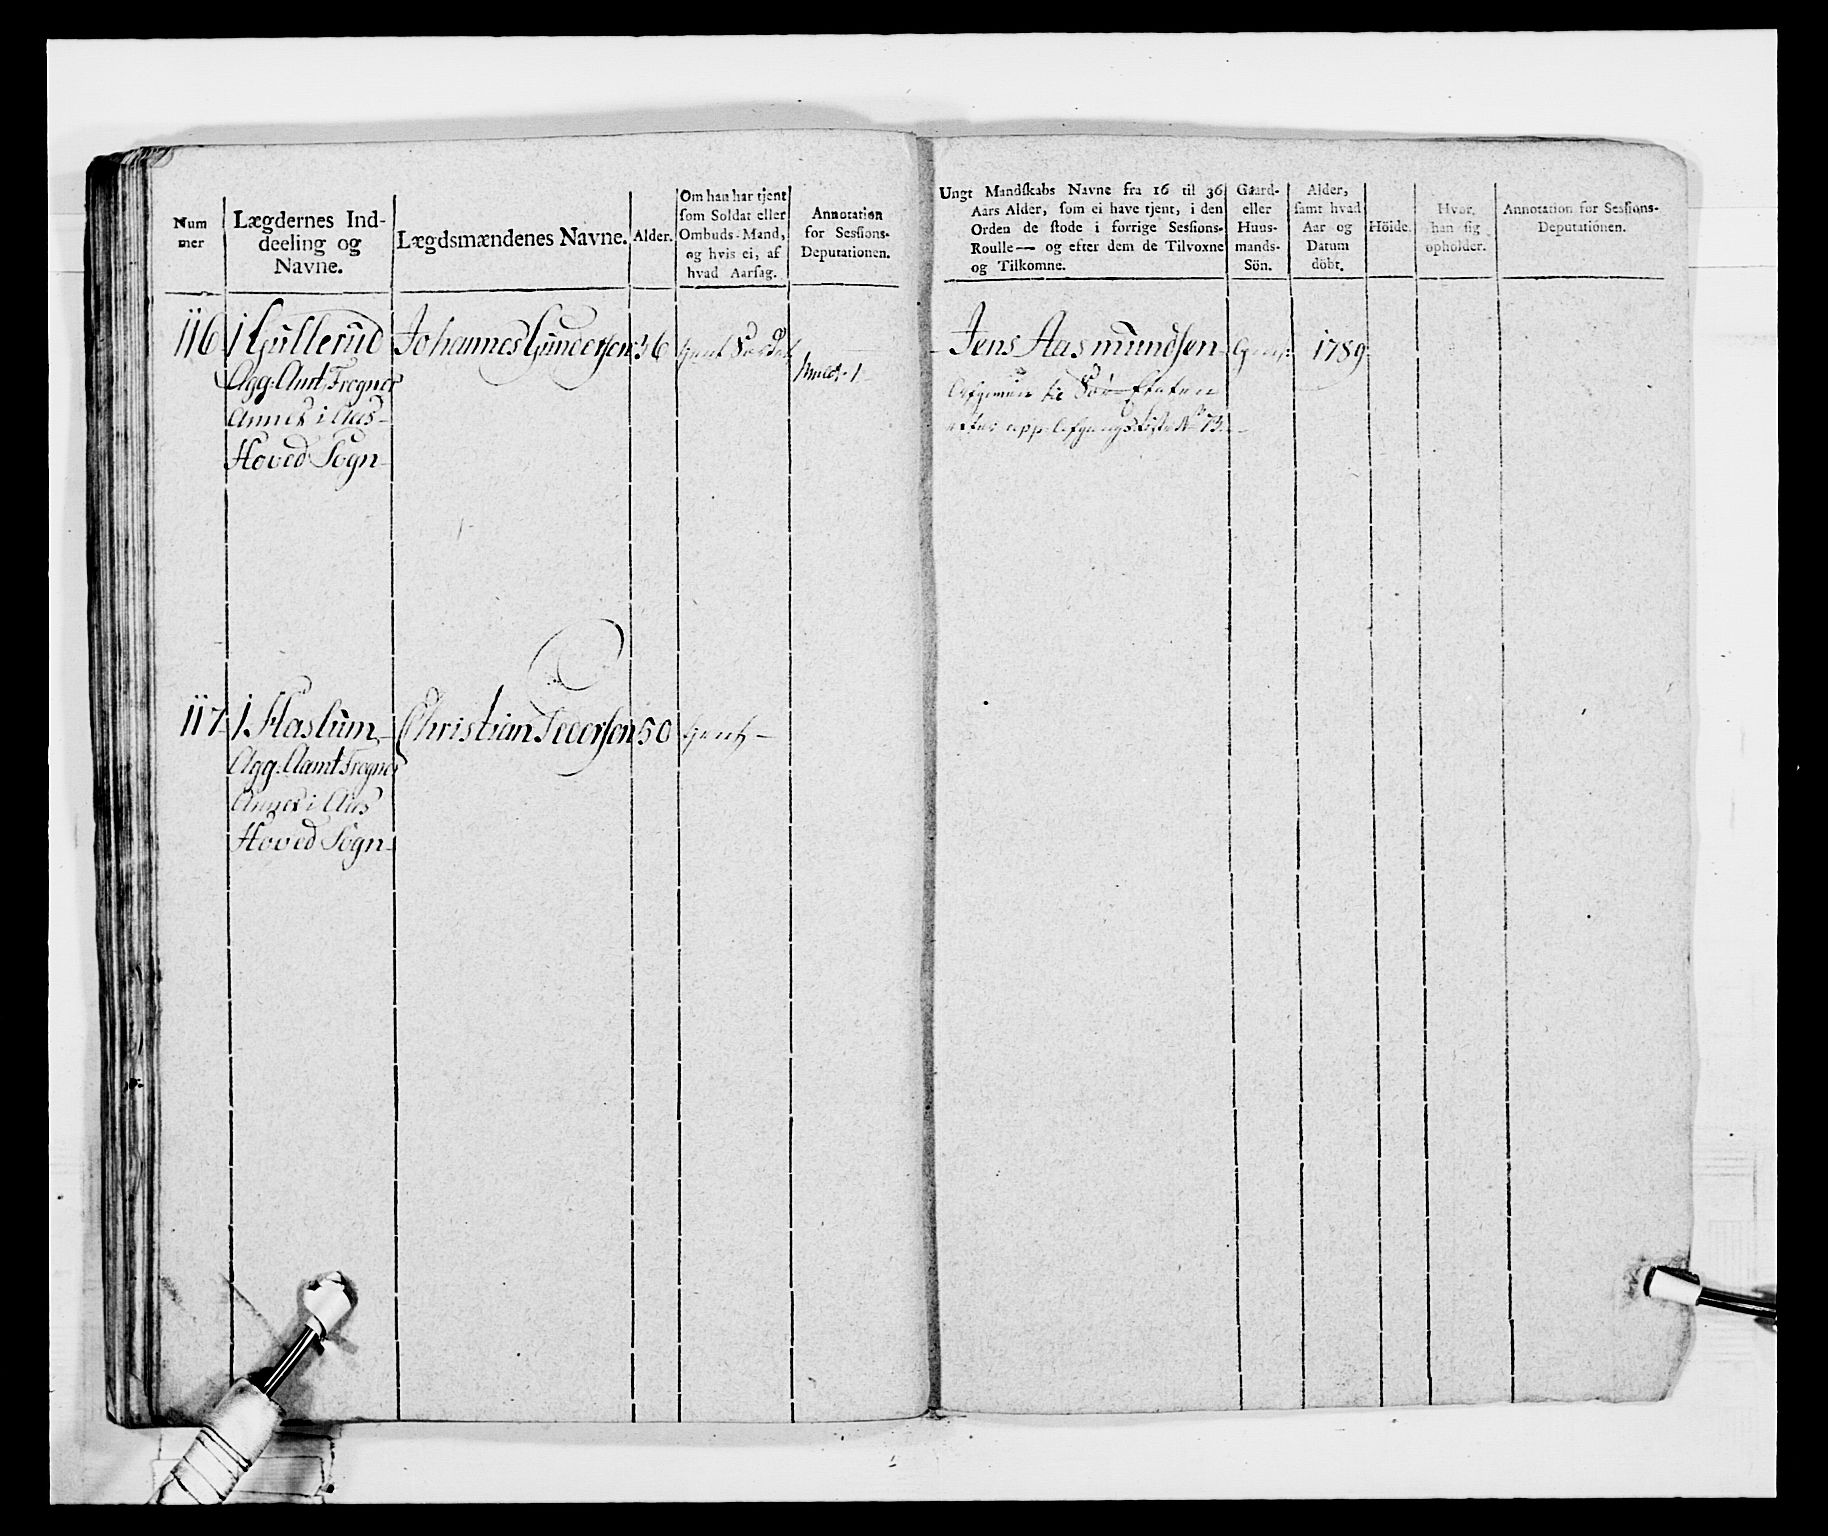 Num
mer
Lægdernes Ind-
deeling og
Navne.
Lægdsmændenes Navne.
Alder.
Om han har tjent
som Soldat eller
Ombuds-Mand,
og hvis ei, af
hvad Aarsag.
Annotation
for Sessions-
Deputationen.
116
1 Gullerud
Agg: Amt Frogner
Annex i Aas
Hoved Sogn
Johannes Gundersen
36
tient
1
117
1 Haslum
Agg: Aamt Frogner
Annex i Aas
Hoved Sogn
Christian Pedersen
50
Ungt Mandskabs Navne fra 16 til 36
Aars Alder, som ei have tjent, i den
Orden de stode i forrige Sessions-
Roulle — og efter dem de Tilvoxne
og Tilkomne.
Gaard-
eller
Huus-
mands-
Sön.
Alder,
samt hvad
Aar og
Datum
döbt.
Höide.
Hvor,
han sig
opholder.
Annotation for Sessions-
Deputationen.
Jens Aasmundsen
1789
Afgaaen til Söe-Etaten
efter app: Afgangs Liste No 73